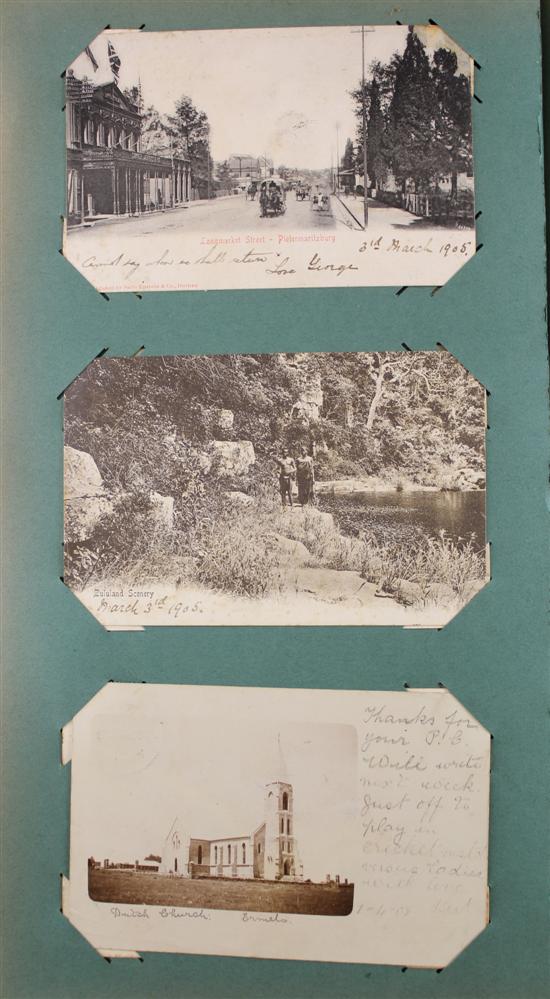 Longmarket Street - Pietermaritzburg
3rd March 1905.
Cannot say when we shall return. Love George
& Co., Durban
Zululand Scenery
March 3rd 1905.
Thanks for
your P.C.
Will write
next week.
Just off to
play in
cricket match
versus Ladies
with love
1-4-09 Bert
Dutch Church. Ermelo.